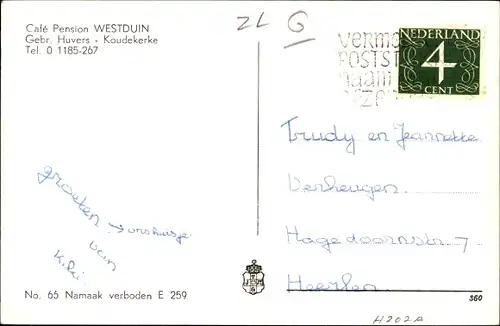 Café Pension WESTDUIN
Gebr. Huvers - Koudekerke
Tel. 0 1185-267
ZL G
NEDERLAND
4
CENT
POSTST
naam
Trudy en Jeannette
Verheugen
Hagedoornstr. 7
Heerlen
groeten → onshuisje
van
No. 65 Namaak verboden E 259
360
H202A